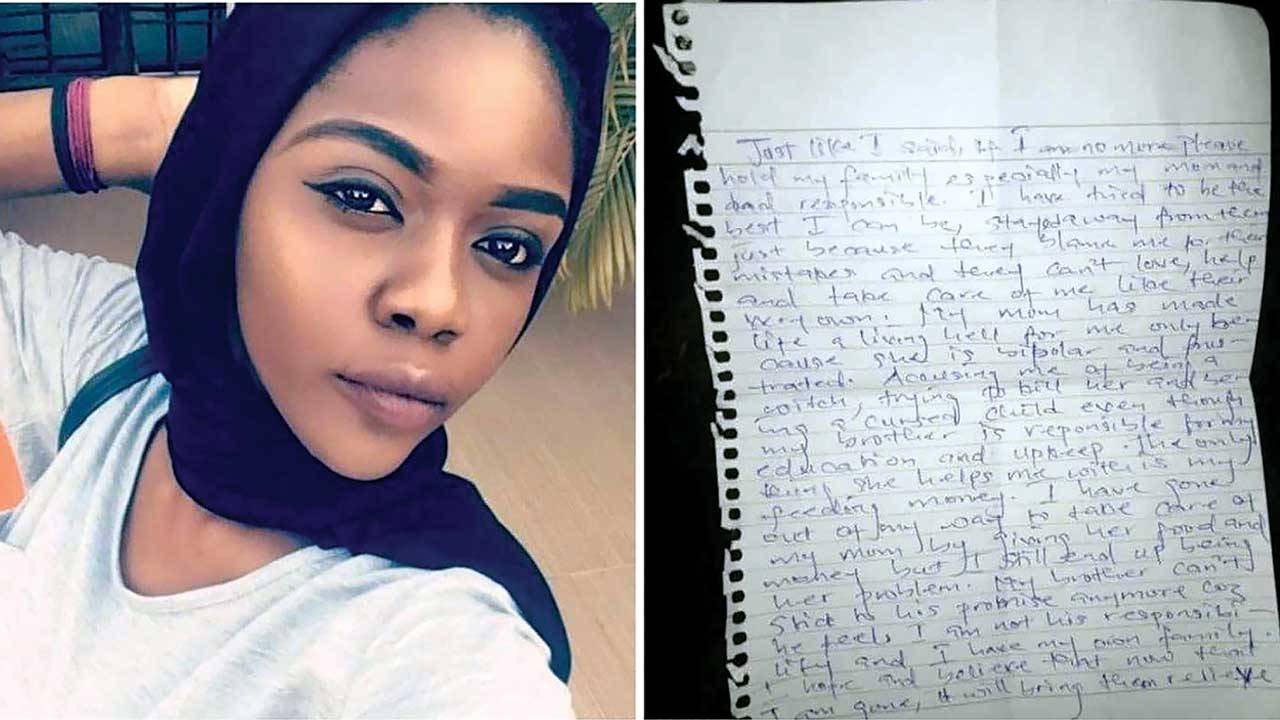 Just like I said, if I am no more please
hold my family especially my mom and
dad responsible. I have tried to be the
best I can be, stayed away from them
just because they blame me for their
mistakes and they can't love, help
and take care of me like their
very own. My mom has made
life a living hell for me only be-
cause she is bipolar and frus-
trated. Acusing me of being a
witch, trying to kill her and be-
ing a cursed child even though
my brother is reponsible for my
education and upkeep. The only
thing she helps me with is my
feeding money. I have gone
out of my way to take care of
my mom by giving her food and
money but I still end up being
her problem. My brother can't
stick to his promise anymore coz
he feels I am not his responsibi-
lity and I have my own family.
I hope and believe that now that
I am gone, it will bring them relieve